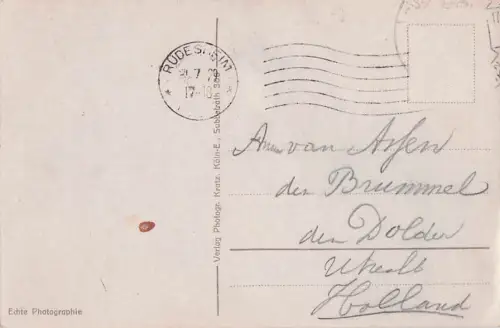 RÜDESHEIM
7 29
17-18
Verlag Photogr. Kratz, Köln-E., Scheibstr.
van Assen
den Brummel
den Dolder
Utrecht
Holland
Echte Photographie